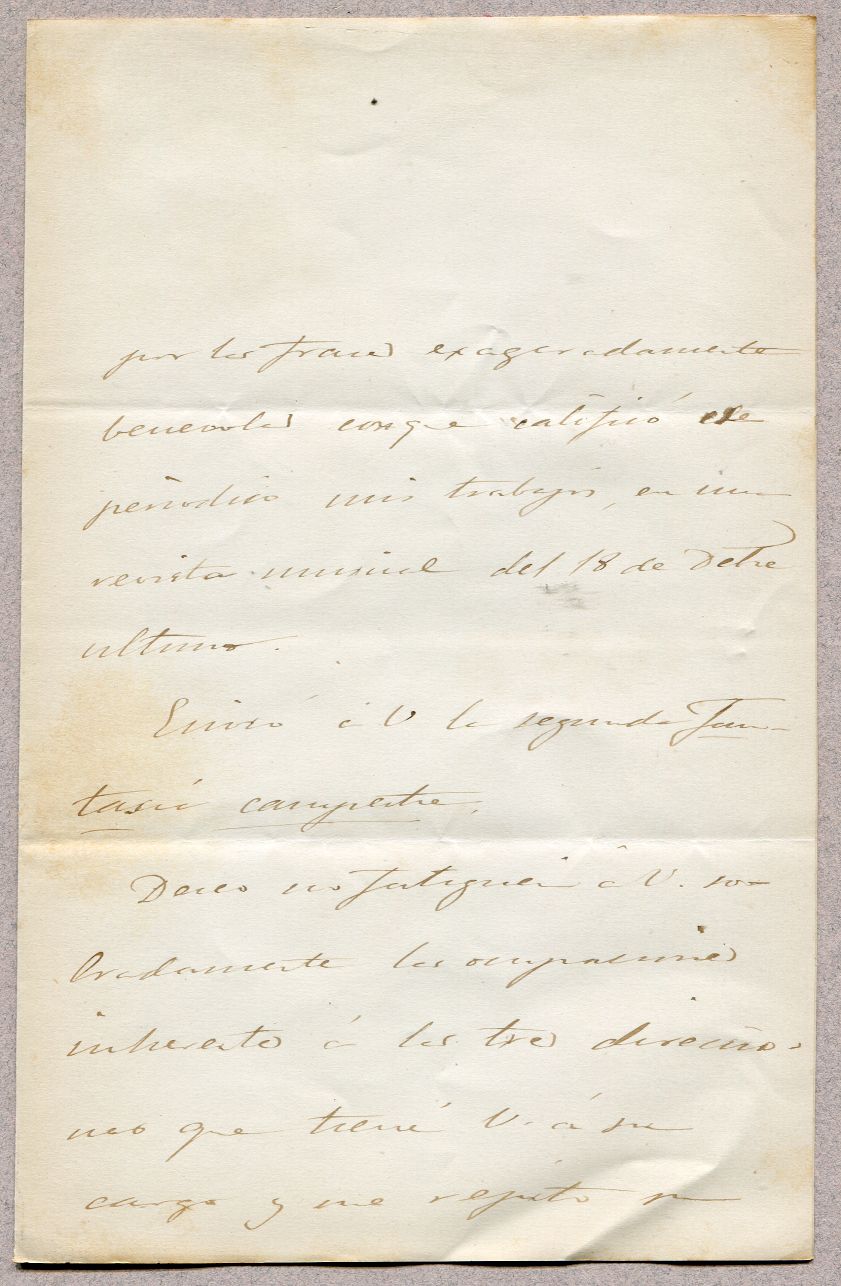 por las frases exageradamente
benevolas conque calificó ese
periodico mis trabajos, en una
revista musical del 18 de Dcbre
ultimo.
Envió á V la segunda Fan-
tasiá campestre.
Deseo no fatiguen á V. so-
bradamente las ocupaciones
inherentes á las tres direccio-
nes que tiené V. á su
cargo y me repito su